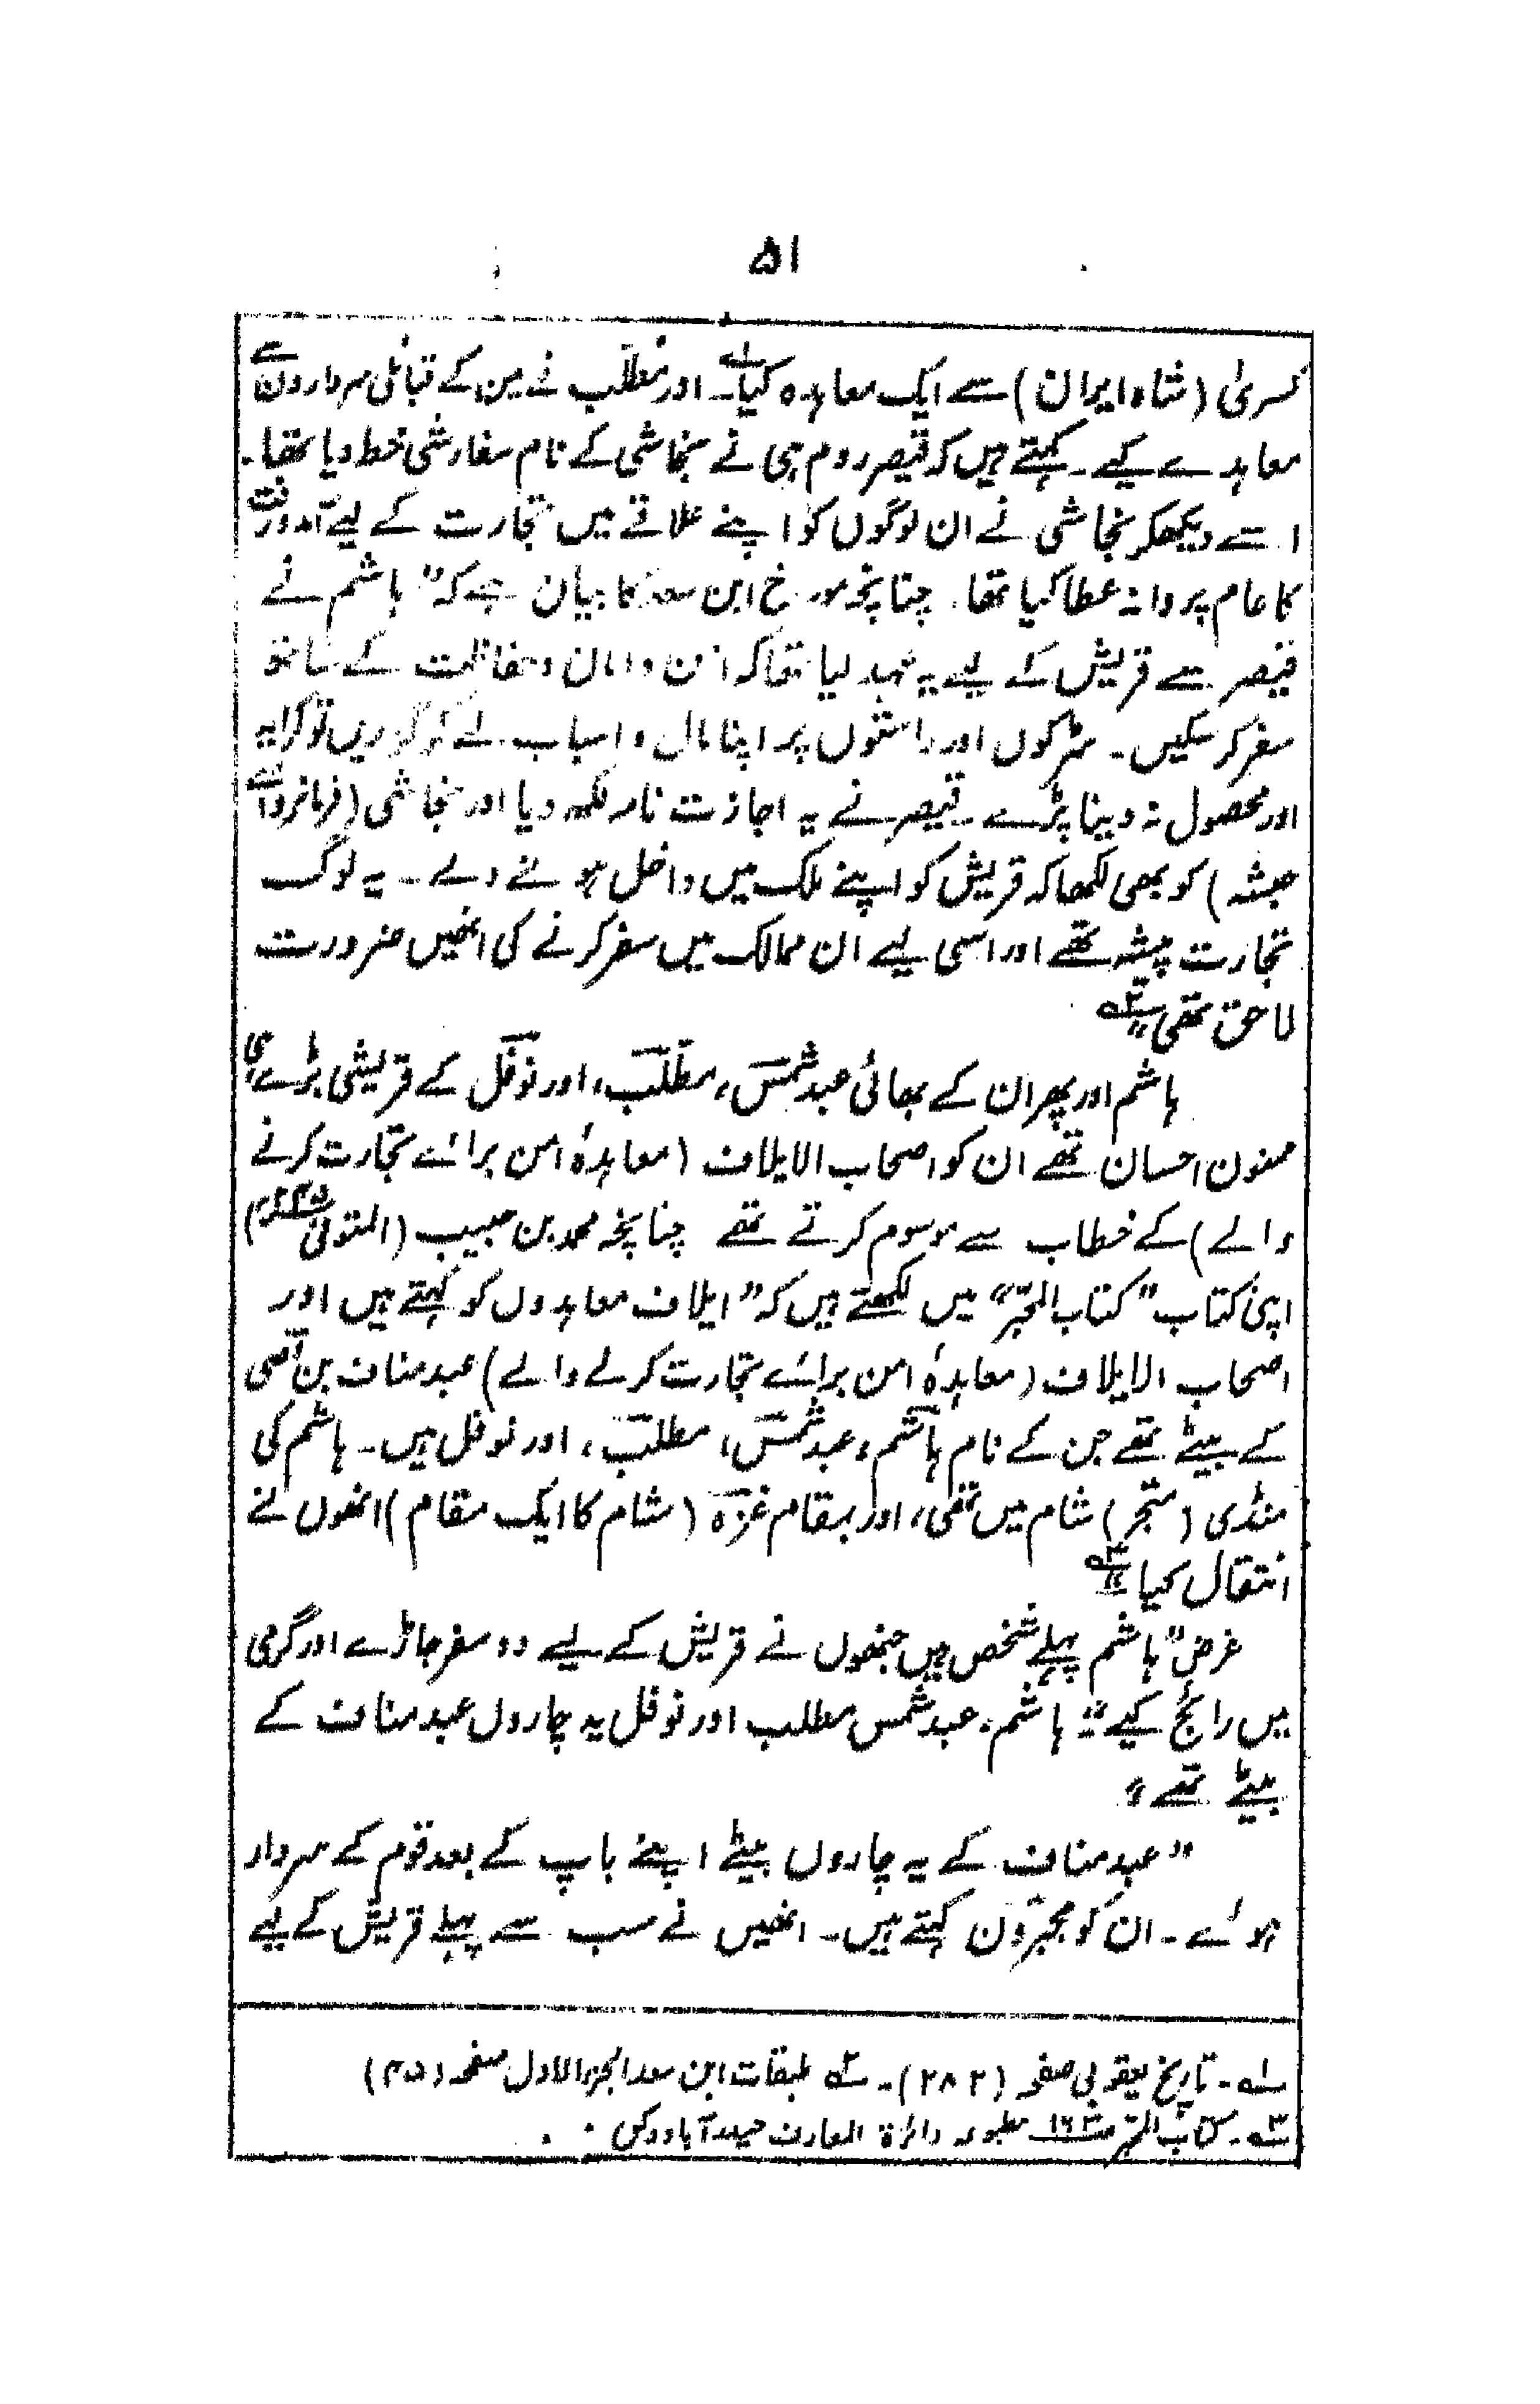 ۵۱
کسریٰ (شاہ ایران) سے ایک معاہدہ کیا۔؎۱ اور مطلّب نے یمن کے قبائلی سرداروں سے
معاہدے کیے۔ کہتے ہیں کہ قیصر روم ہی نے نجاشی کے نام سفارشی خط دیا تھا۔
اسے دیکھکر نجاشی نے ان لوگوں کو اپنے علاقے میں تجارت کے لیے آمدورفت
کا عام پروانہ عطا کیا تھا۔ چنانچہ مورخ ابن سعد کا بیان ہے کہ ”ہاشم نے
قیصر سے قریش کے لیے یہ عہد لیا تھا کہ امن و امان و حفاظت کے ساتھ
سفر کر سکیں۔ سڑکوں اور راستوں پر اپنا مال و اسباب لے کر گزریں تو کرایہ
اور محصول نہ دینا پڑے۔ قیصر نے یہ اجازت نامہ لکھ دیا اور نجاشی (فرمانروائے
حبشہ) کو بھی لکھا کہ قریش کو اپنے ملک میں داخل ہونے دے۔ یہ لوگ
تجارت پیشہ تھے اور اسی لیے ان ممالک میں سفر کرنے کی انھیں ضرورت
لاحق تھی“؎۲
ہاشم اور پھر ان کے بھائی عبدشمس، مطلّب، اور نوفل کے قریشی بڑے ہی
ممنون احسان تھے ان کو اصحاب الایلاف (معاہدۂ امن برائے تجارت کرنے
والے) کے خطاب سے موسوم کرتے تھے چنانچہ محمد بن حبیب (المتوفی ۲۴۵ھ)
اپنی کتاب ”کتاب المحبّر“ میں لکھتے ہیں کہ ”ایلاف معاہدوں کو کہتے ہیں اور
اصحاب الایلاف (معاہدۂ امن برائے تجارت کرلے والے) عبدمناف بن قصی
کے بیٹے تھے جن کے نام ہاشم، عبدشمس، مطلّب، اور نوفل ہیں۔ ہاشم کی
منڈی (متجر) شام میں تھی، اور بمقام غزہ (شام کا ایک مقام) انھوں نے
انتقال کیا“؎۳
غرض ”ہاشم پہلے شخص ہیں جنھوں نے قریش کے لیے دو سفر جاڑے اور گرمی
میں رائج کیے“ ہاشم، عبدشمس مطلب اور نوفل یہ چاروں عبدمناف کے
بیٹے تھے“
”عبدمناف کے یہ چاروں بیٹے اپنے باپ کے بعد قوم کے سردار
ہوئے۔ ان کو مجبّرون کہتے ہیں۔ انھیں نے سب سے پہلے قریش کے لیے
؎۱۔ تاریخ یعقوبی صفحہ (۲۸۲)۔ ؎۲ طبقات ابن سعد الجزء الاول صفحہ (۴۵)
؎۳۔ کتاب المحبّر ص۱۶۲ مطبوعہ دائرۃ المعارف حیدرآباد دکن۔